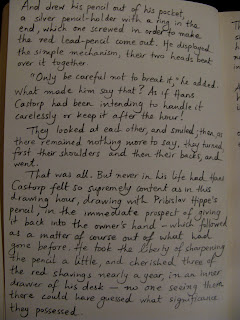 And drew his pencil out of his pocket,
a silver pencil-holder with a ring in the
end, which one screwed in order to make
the red lead-pencil come out. He displayed
the simple mechanism, their two heads bent
over it together.
"Only be careful not to break it," he added.
What made him say that? As if Hans
Castorp had been intending to handle it
carelessly or keep it after the hour!
They looked at each other, and smiled; then, as
there remained nothing more to say, they turned,
first their shoulders and then their backs, and
went.
That was all. But never in his life had Hans
Castorp felt so supremely content as in this
drawing hour, drawing with Pribislav Hippe's
pencil, in the immediate prospect of giving
it back into the owner's hand - which followed
as a matter of course out of what had
gone before. He took the liberty of sharpening
the pencil a little, and cherished three of
the red shavings nearly a year, in an inner
drawer of his desk - no one seeing them
there could have guessed what significance
they possessed.